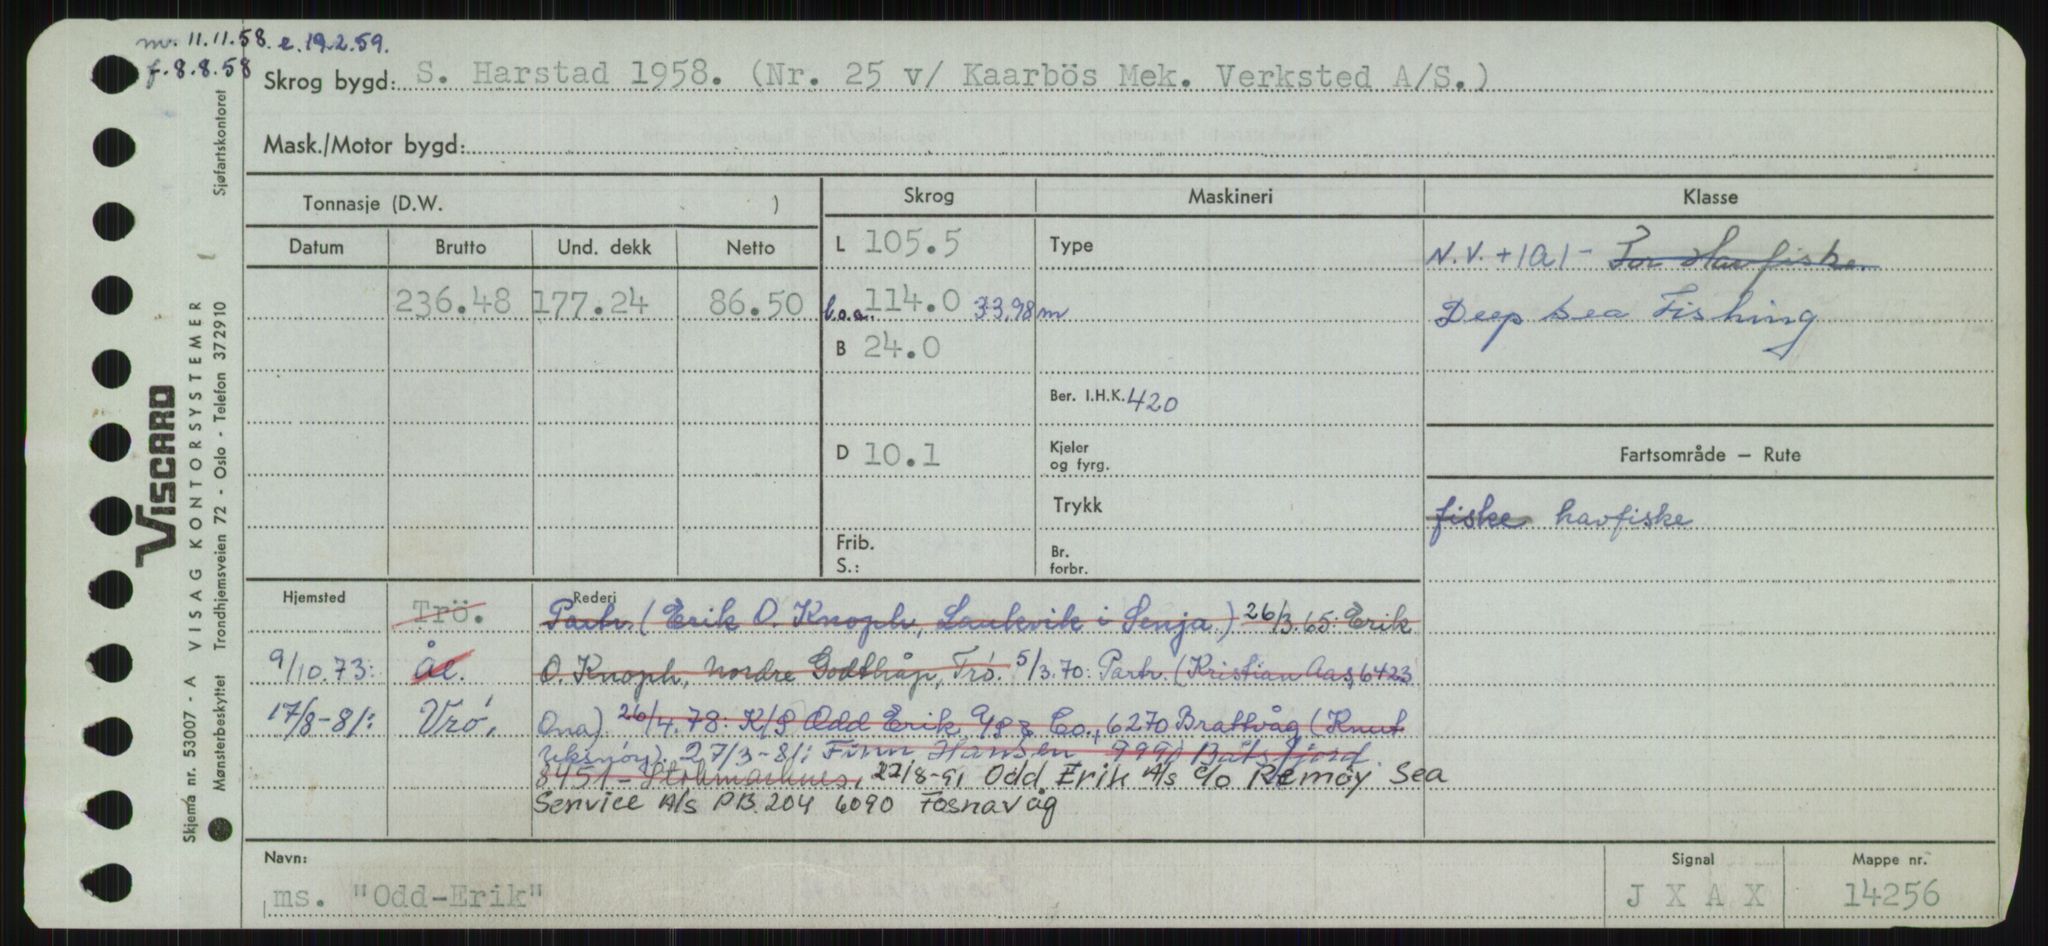 m. 11.11.58. e. 19.2.59.
f. 8.8.58
Skrog bygd: S. Harstad 1958. (Nr. 25 v/ Kaarbös Mek. Verksted A/S.)
Mask./Motor bygd:
Tonnasje (D.W. )
Skrog
Maskineri
Klasse
Datum Brutto Und. dekk Netto
L 105.5
Type
N.V. +1A1- For Havfiske
236.48 177.24 86.50
l.o.a. 114.0 33.98 m
Deep sea Fishing
B 24.0
Ber. I.H.K. 420
D 10.1
Kjeler
og fyrg.
Fartsområde – Rute
Trykk
fiske havfiske
Frib.
S.:
Br.
forbr.
Hjemsted
Rederi
Trö. Partr. (Erik O. Knoph, Laukvik i Senja.) 26/3.65: Erik
9/10.73: Ål. O. Knoph, Nordre Godthåp, Trö. 5/3.70: Partr. (Kristian Aas, 6423
17/8-81: Vrö. Ona). 26/4.78: K/S Odd Erik A/S & Co., 6270 Brattvåg (Knut
27/3-81: Finn Hansen 9990 Båtsfjord.
8451 - Stokmarknes, 27/8-91 Odd Erik A/s c/o Remöy Sea
Service A/s P.B. 204 6090 Fosnavåg
Navn:
ms. "Odd-Erik"
Signal
J X A X
Mappe nr.
14256
VISCARD
VISAG KONTORSYSTEMER
Sjøfartskontoret
Skjema nr. 53007 - A
Mønsterbeskyttet Trondhjemsveien 72 - Oslo - Telefon 372910